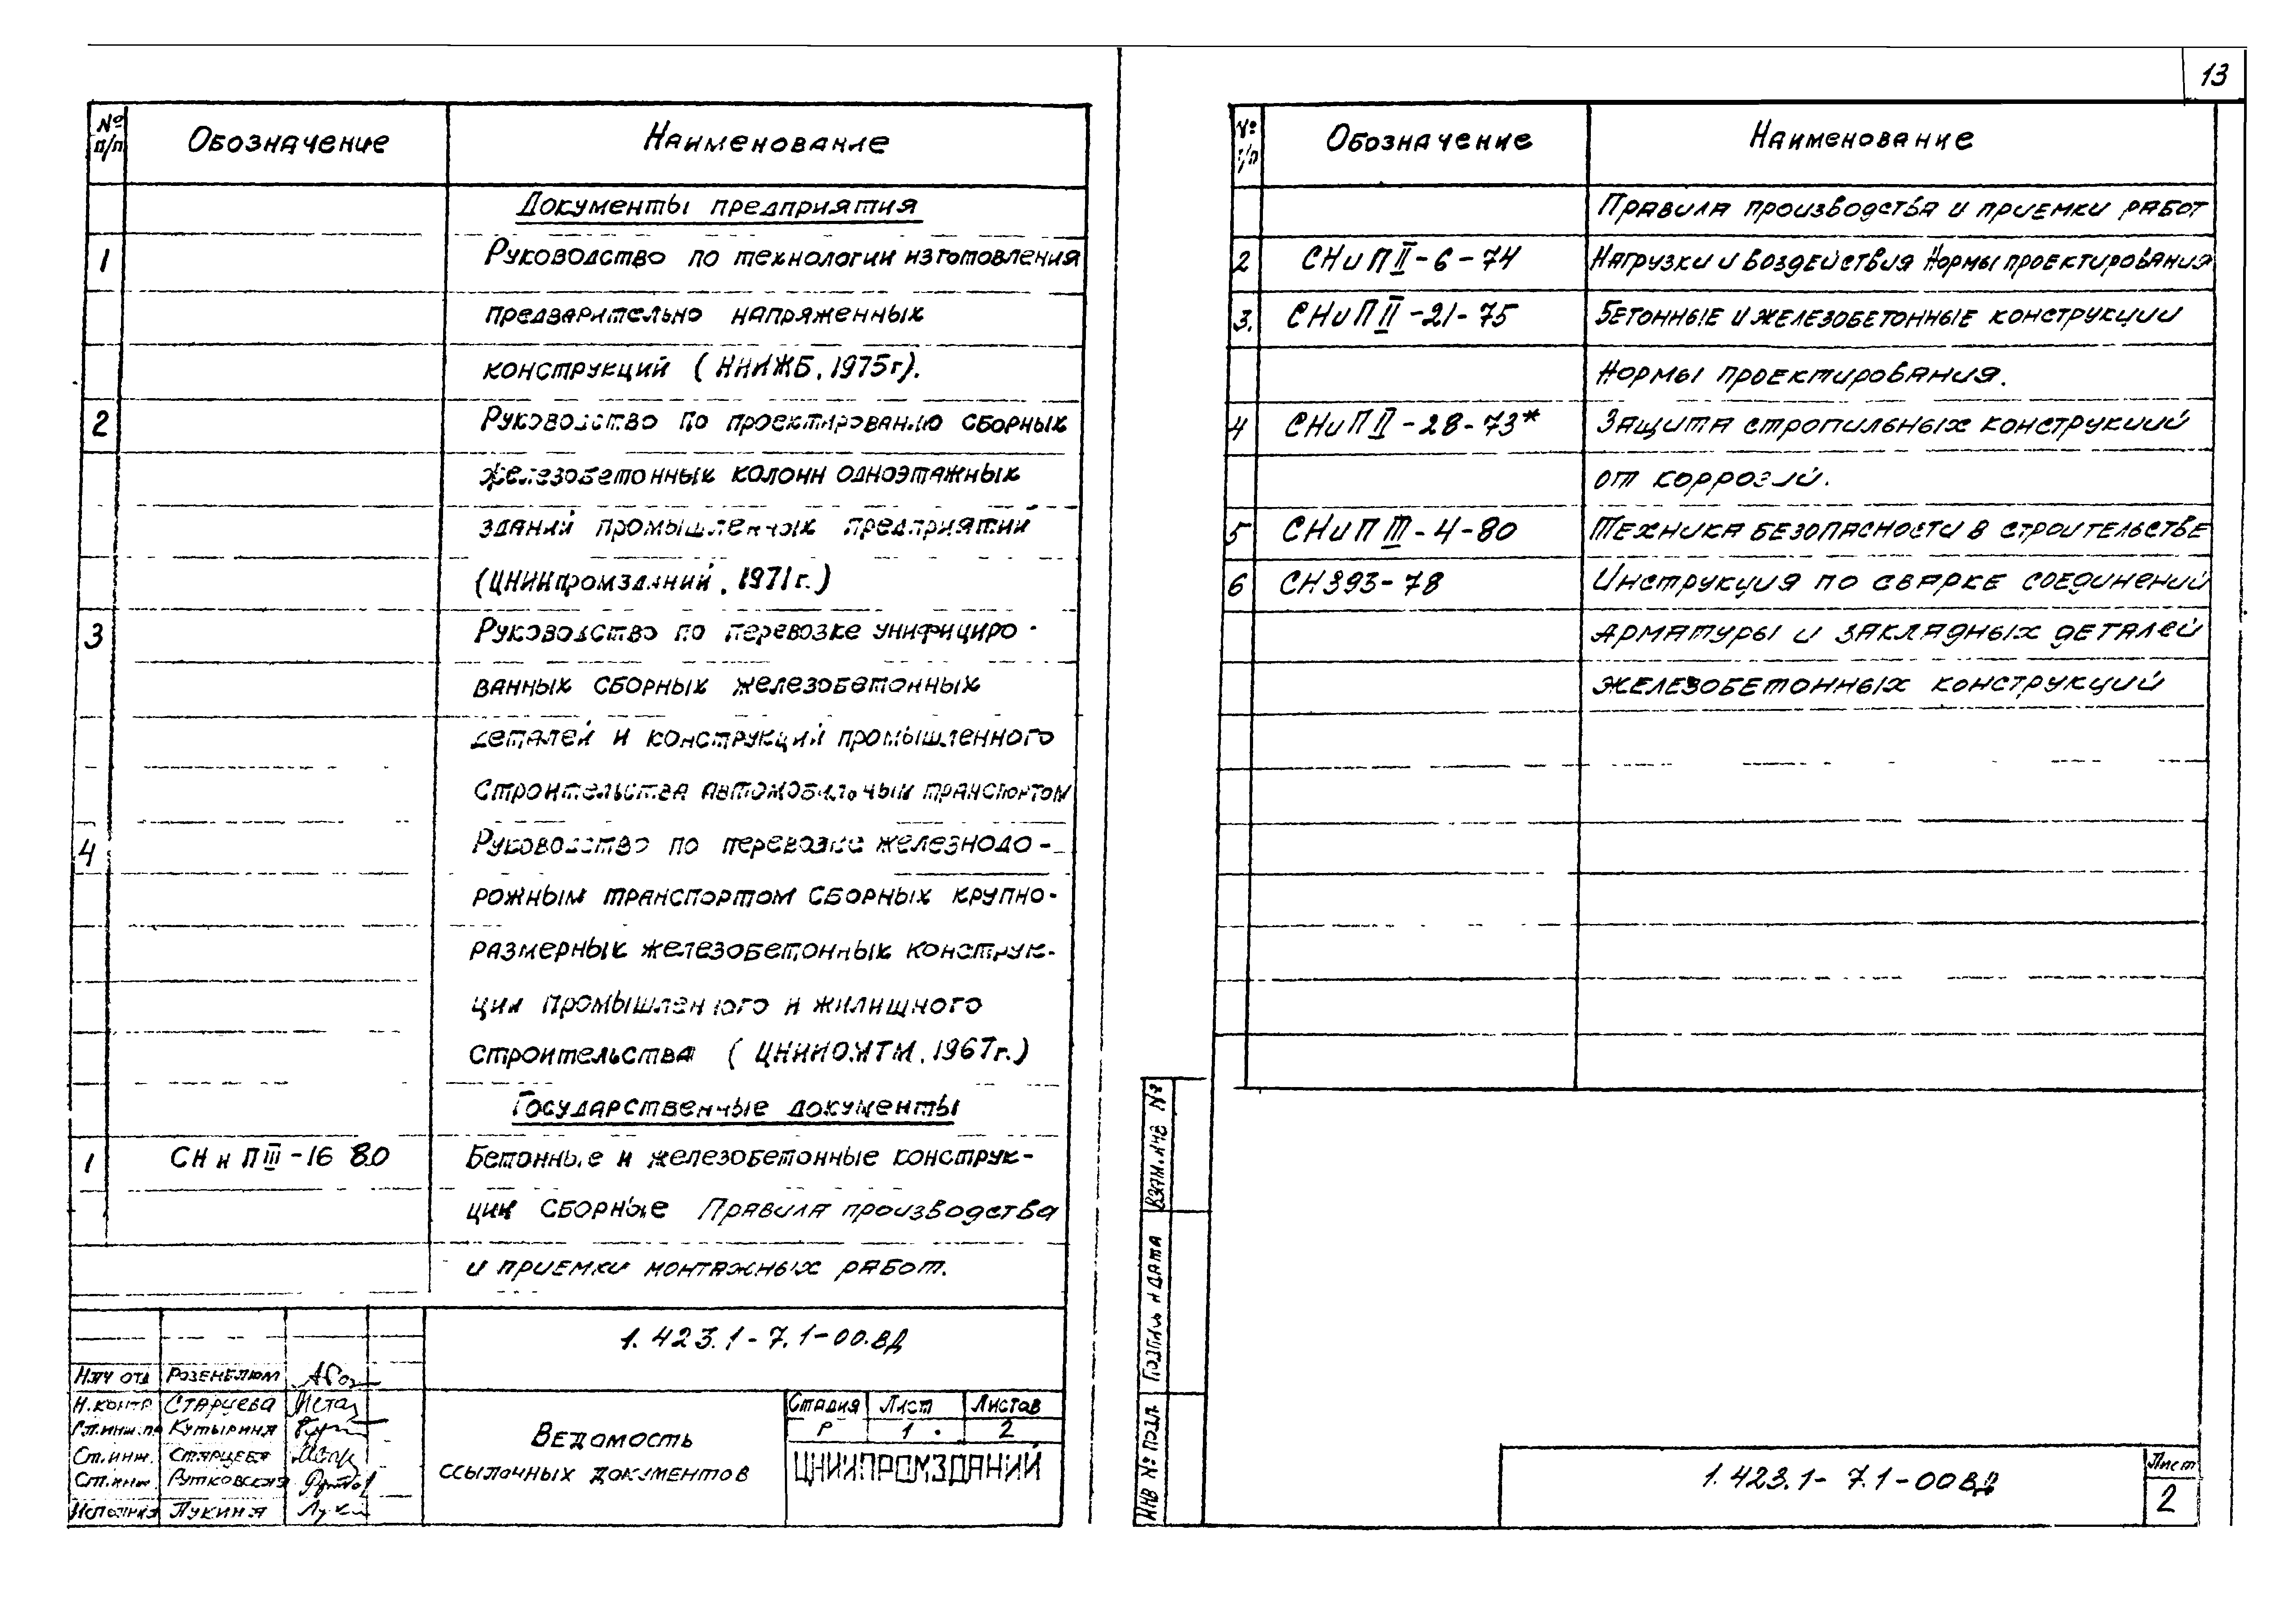 13
№ п/п Обозначение Наименование
Документы предприятия
1 Руководство по технологии изготовления
предварительно напряженных
конструкций (НИИЖБ, 1975г).
2 Руководство по проектированию сборных
железобетонных колонн одноэтажных
зданий промышленных предприятий
(ЦНИИпромзданий, 1971г.)
3 Руководство по перевозке унифициро-
ванных сборных железобетонных
деталей и конструкций промышленного
строительства автомобильным транспортом
4 Руководство по перевозке железнодо-
рожным транспортом сборных крупно-
размерных железобетонных конструк-
ции промышленного и жилищного
строительства (ЦНИИОМТП, 1967г.)
Государственные документы
1 СНиП III-16 80 Бетонные и железобетонные конструк-
ции сборные Правила производства
и приемки монтажных работ.
1.423.1-7.1-00.ВД
Нач отд Розенблюм
Н.контр Старцева
Гл.инж.пр Кутырина
Ст.инж. Старцева
Ст.инж. Рутковская
Исполнил Лукина
Ведомость
ссылочных документов
Стадия Лист Листов
Р 1 2
ЦНИИПРОМЗДАНИЙ
№ п/п Обозначение Наименование
Правила производства и приемки работ
2 СНиП II-6-74 Нагрузки и воздействия Нормы проектирования
3. СНиП II-21-75 Бетонные и железобетонные конструкции
Нормы проектирования.
4 СНиП II-28-73* Защита стропильных конструкций
от коррозий.
5 СНиП III-4-80 Техника безопасности в строительстве
6 СН 393-78 Инструкция по сварке соединений
арматуры и закладных деталей
железобетонных конструкций
Взам.инв №
Подпись и дата
Инв № подл.
1.423.1-7.1-00ВД
Лист
2